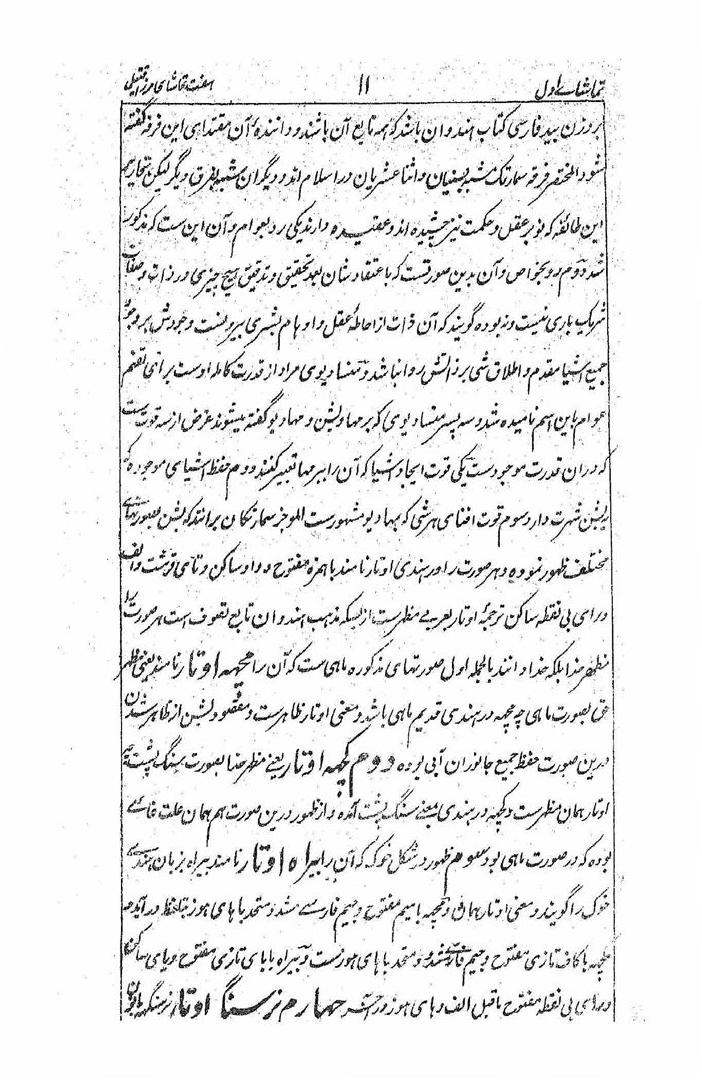 تماشاے اول ۱۱ هفت تماشای مرزا قتیل
بروزن بید فارسی کتاب هندوان باشد که همه تابع آن باشند و دانندهٔ آن مقتدای این فرقه گفته
شود المختصر فرقه سمارتک مشبه بسنیان و اثنا عشریان در اسلام اند و دیگران مشبه بفرق دیگر لیکن تجاریب
این طائفه که بو بر عقل و حکمت نیز چشیده اند دو عقیده دارند یکی رو بعوام و آن این ست که مذکور
شد دوم رو بخواص و آن بدین صورتست که باعتقاد شان بعد تحقیق و تدقیق هیچ چیزی در ذات و صفات
شریک باری نیست و نبوده گویند که آن ذات از احاطهٔ عقل و اوهام بشری بیرونست وجودش بر وجود
جمیع اشیا مقدم و اطلاق شی بر ذاتش روا نباشد و منسا دیوی مراد از قدرت کامله اوست برای تفهم
عوام باین اسم نامیده شد و سه پسر منسا دیوی که برمها و بشن و مهادیو گفته میشوند غرض از سه قوت ست
که دران قدرت موجودست یکی قوت ایجاد اشیا که آن را ببرمها تعبیر کنند دوم حفظ اشیای موجوده که
ببشن شهرت دارد سوم قوت افنای هر شی که بمهادیو مشهورست الموجز سمارتکان برانند که بشن بصورتهای
مختلف ظهور نموده و هر صورت را در هندی اوتار نامند با همزه مفتوح و واو ساکن و تای قرشت و الف
و رای بی نقطه ساکن ترجمهٔ اوتار بعربی مظهرست ازبسکه مذهب هندوان تابع تصوف است هر صورت را
مظهر خدا بلکه خدا دانند بالجمله اول صورتهای مذکوره ماهی ست که آن را مچهه اوتار نامند یعنی مظهر
حق بصورت ماهی چه مچهه در هندی قدیم ماهی باشد و معنی اوتار ظاهرست و مقصود بشن از ظاهر شدن
درین صورت حفظ جمیع جانوران آبی بوده دوم کچهه اوتار یعنی مظهر خدا بصورت سنگ پشت چه
اوتار همان مظهرست و کچهه در هندی بمعنے سنگ پشت آمده و از ظهور درین صورت هم همان علت غائے
بوده که در صورت ماهی بود سوم ظهور در شکل خوک که آن را بیراه اوتار نامند بیراه بزبان هندے
خوک را گویند و معنی اوتار همان و مچهه با میم مفتوح و جیم فارسے مشدد متحد با های هوز بتلفظ در آید و
کچهه با کاف تازی مفتوح و جیم فارسے مشدد و متحد با های هوزست و بیراه با بای تازی مفتوح و یای ساکن
و رای بی نقطه مفتوح ماقبل الف و های هوز در آخر چهارم نرسنگ اوتار نرسنگهه با نون